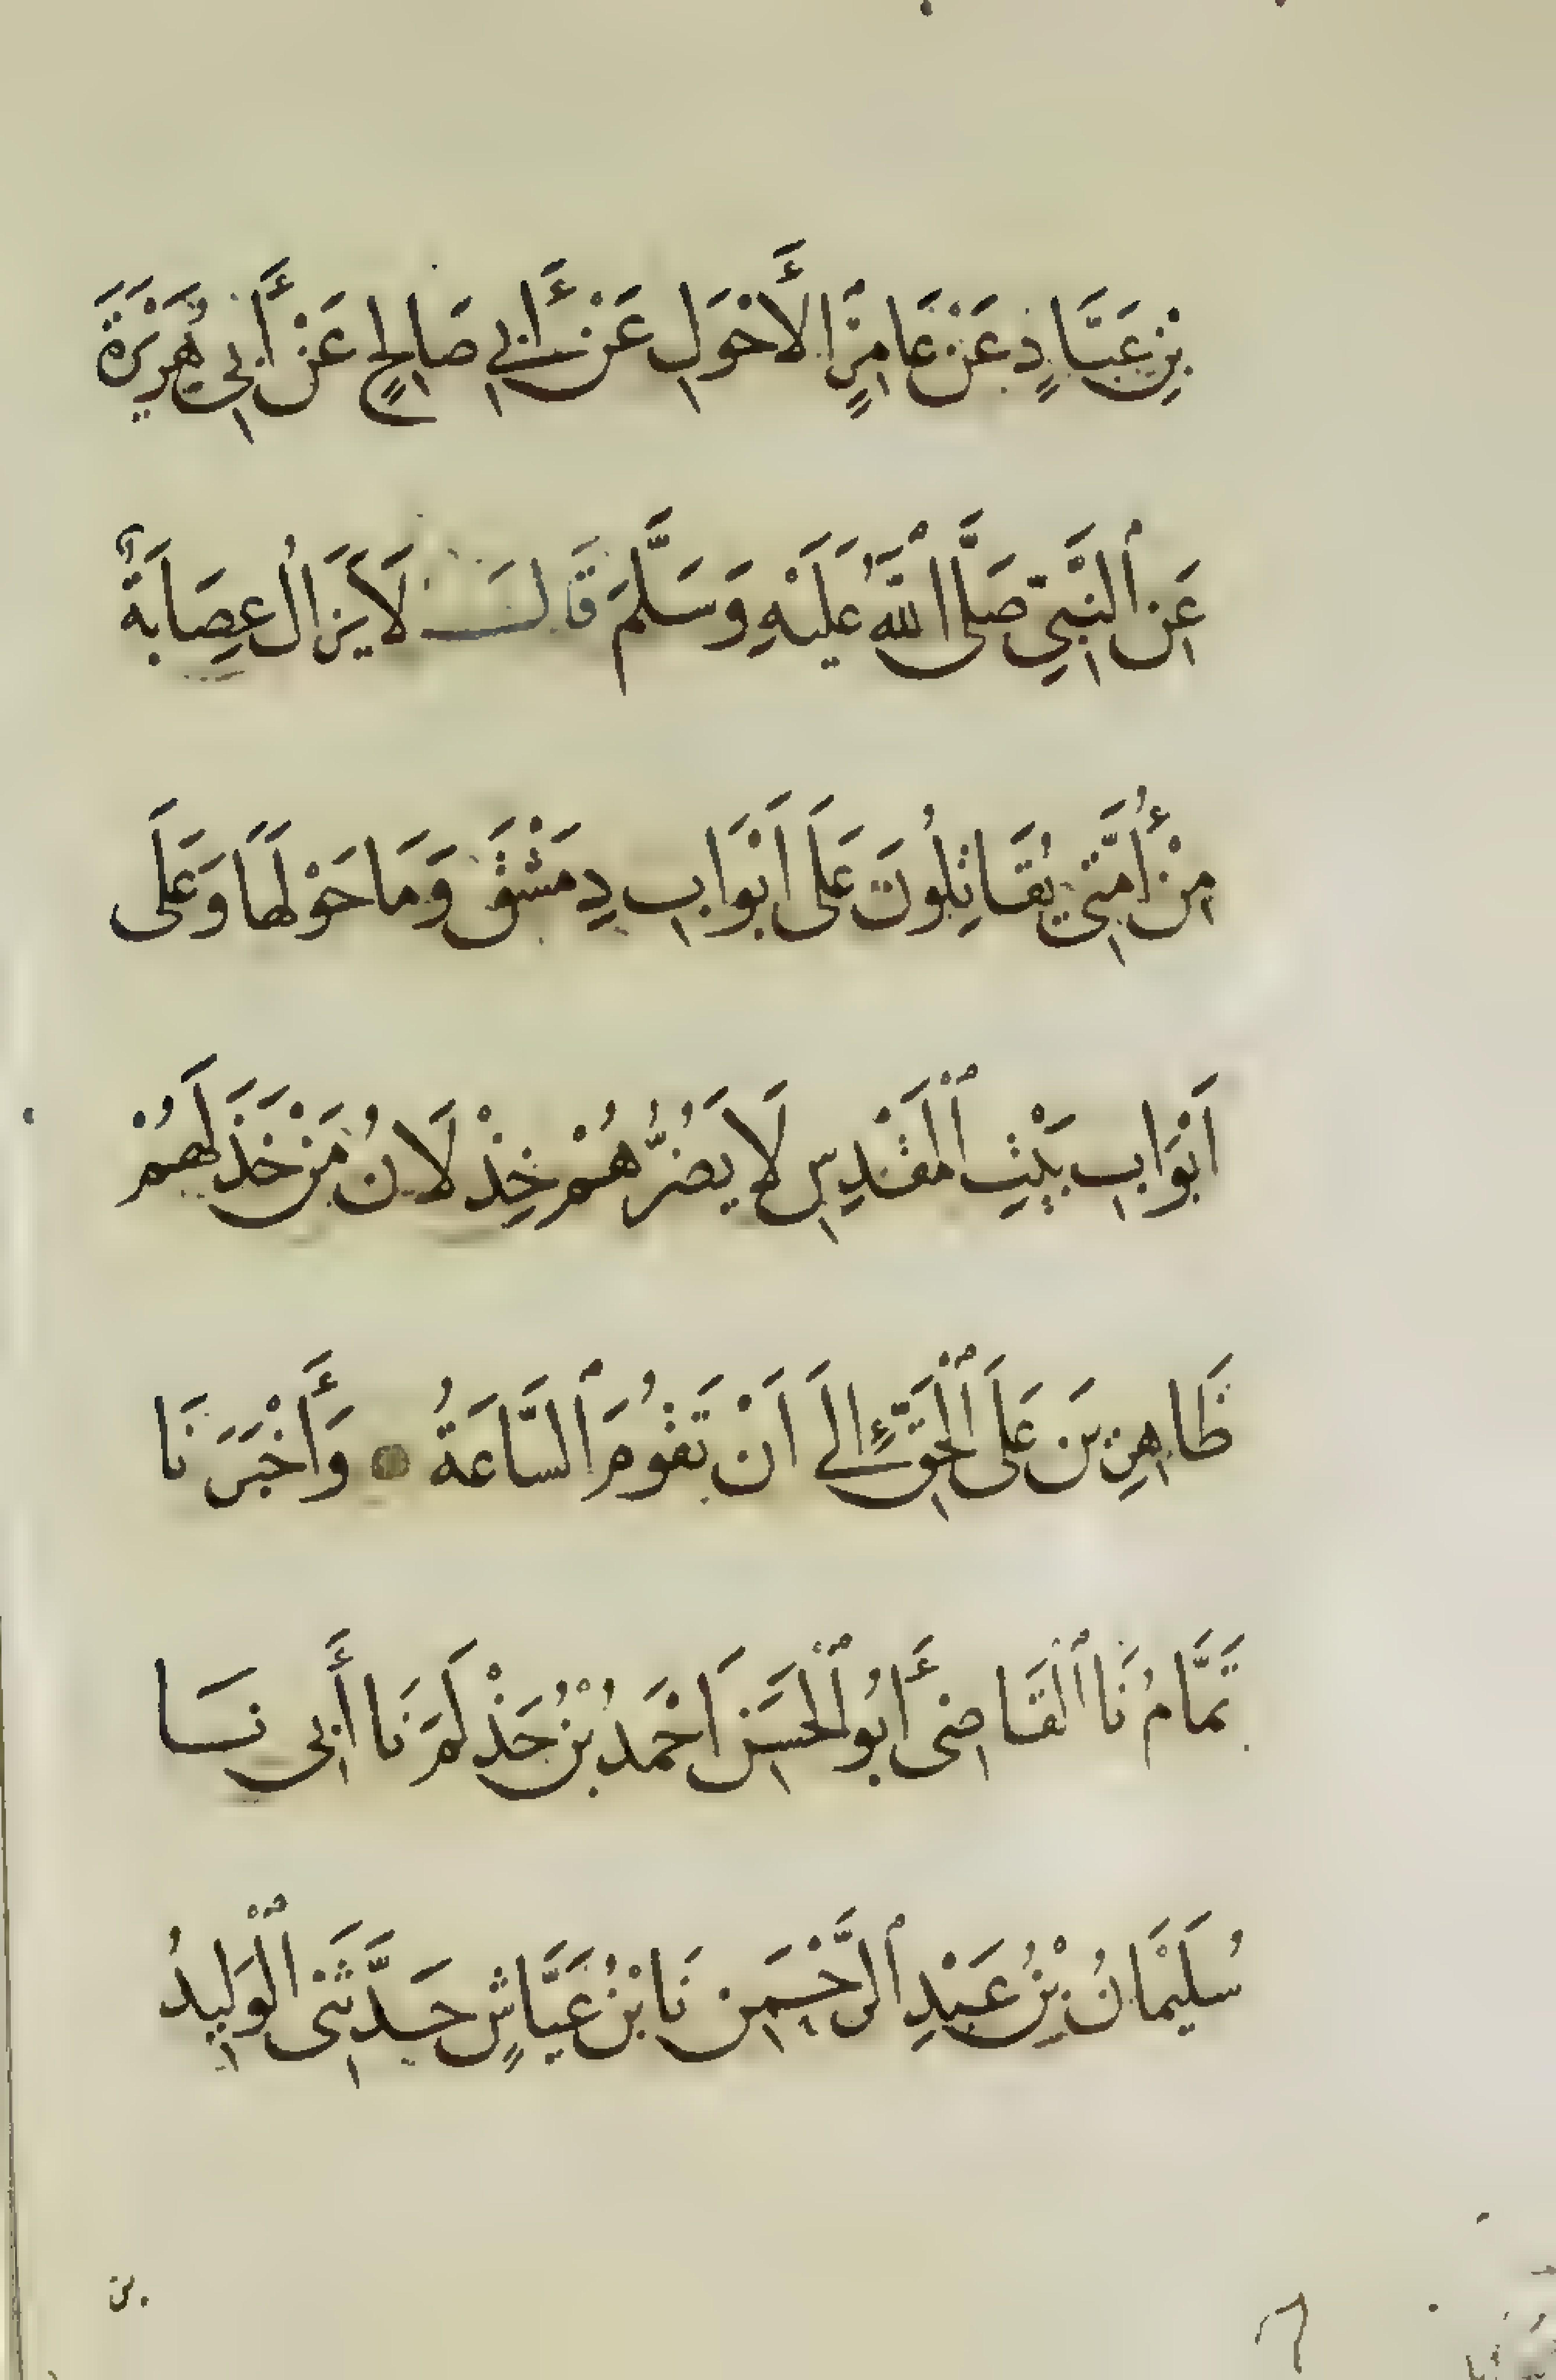 بْنِ عَبَّادٍ عَنْ عَامِرٍ الأَحْوَلِ عَنْ أَبِي صَالِحٍ عَنْ أَبِي هُرَيْرَةَ
عَنِ ٱلنَّبِيِّ صَلَّى ٱللَّهُ عَلَيْهِ وَسَلَّمَ قَالَ لَا يَزَالُ عِصَابَةٌ
مِنْ أُمَّتِي يُقَاتِلُونَ عَلَى اَبْوَابِ دِمَشْقَ وَمَا حَوْلَهَا وَعَلَى
اَبْوَابِ بَيْتِ ٱلْمَقْدِسِ لَا يَضُرُّهُمْ خِذْلَانُ مَنْ خَذَلَهُمْ
ظَاهِرِينَ عَلَى ٱلْحَقِّ إِلَى اَنْ تَقُومَ ٱلسَّاعَةُ وَأَخْبَرَنَا
تَمَّامُ نَا ٱلْقَاضِي أَبُو ٱلْحَسَنِ اَحْمَدُ بْنُ حَذْلَمَ نَا أَبِي نَا
سُلَيْمَانُ بْنُ عَبْدِ ٱلرَّحْمَنِ نَا بْنُ عَيَّاشٍ حَدَّثَنِي ٱلْوَلِيدُ
بن
٦